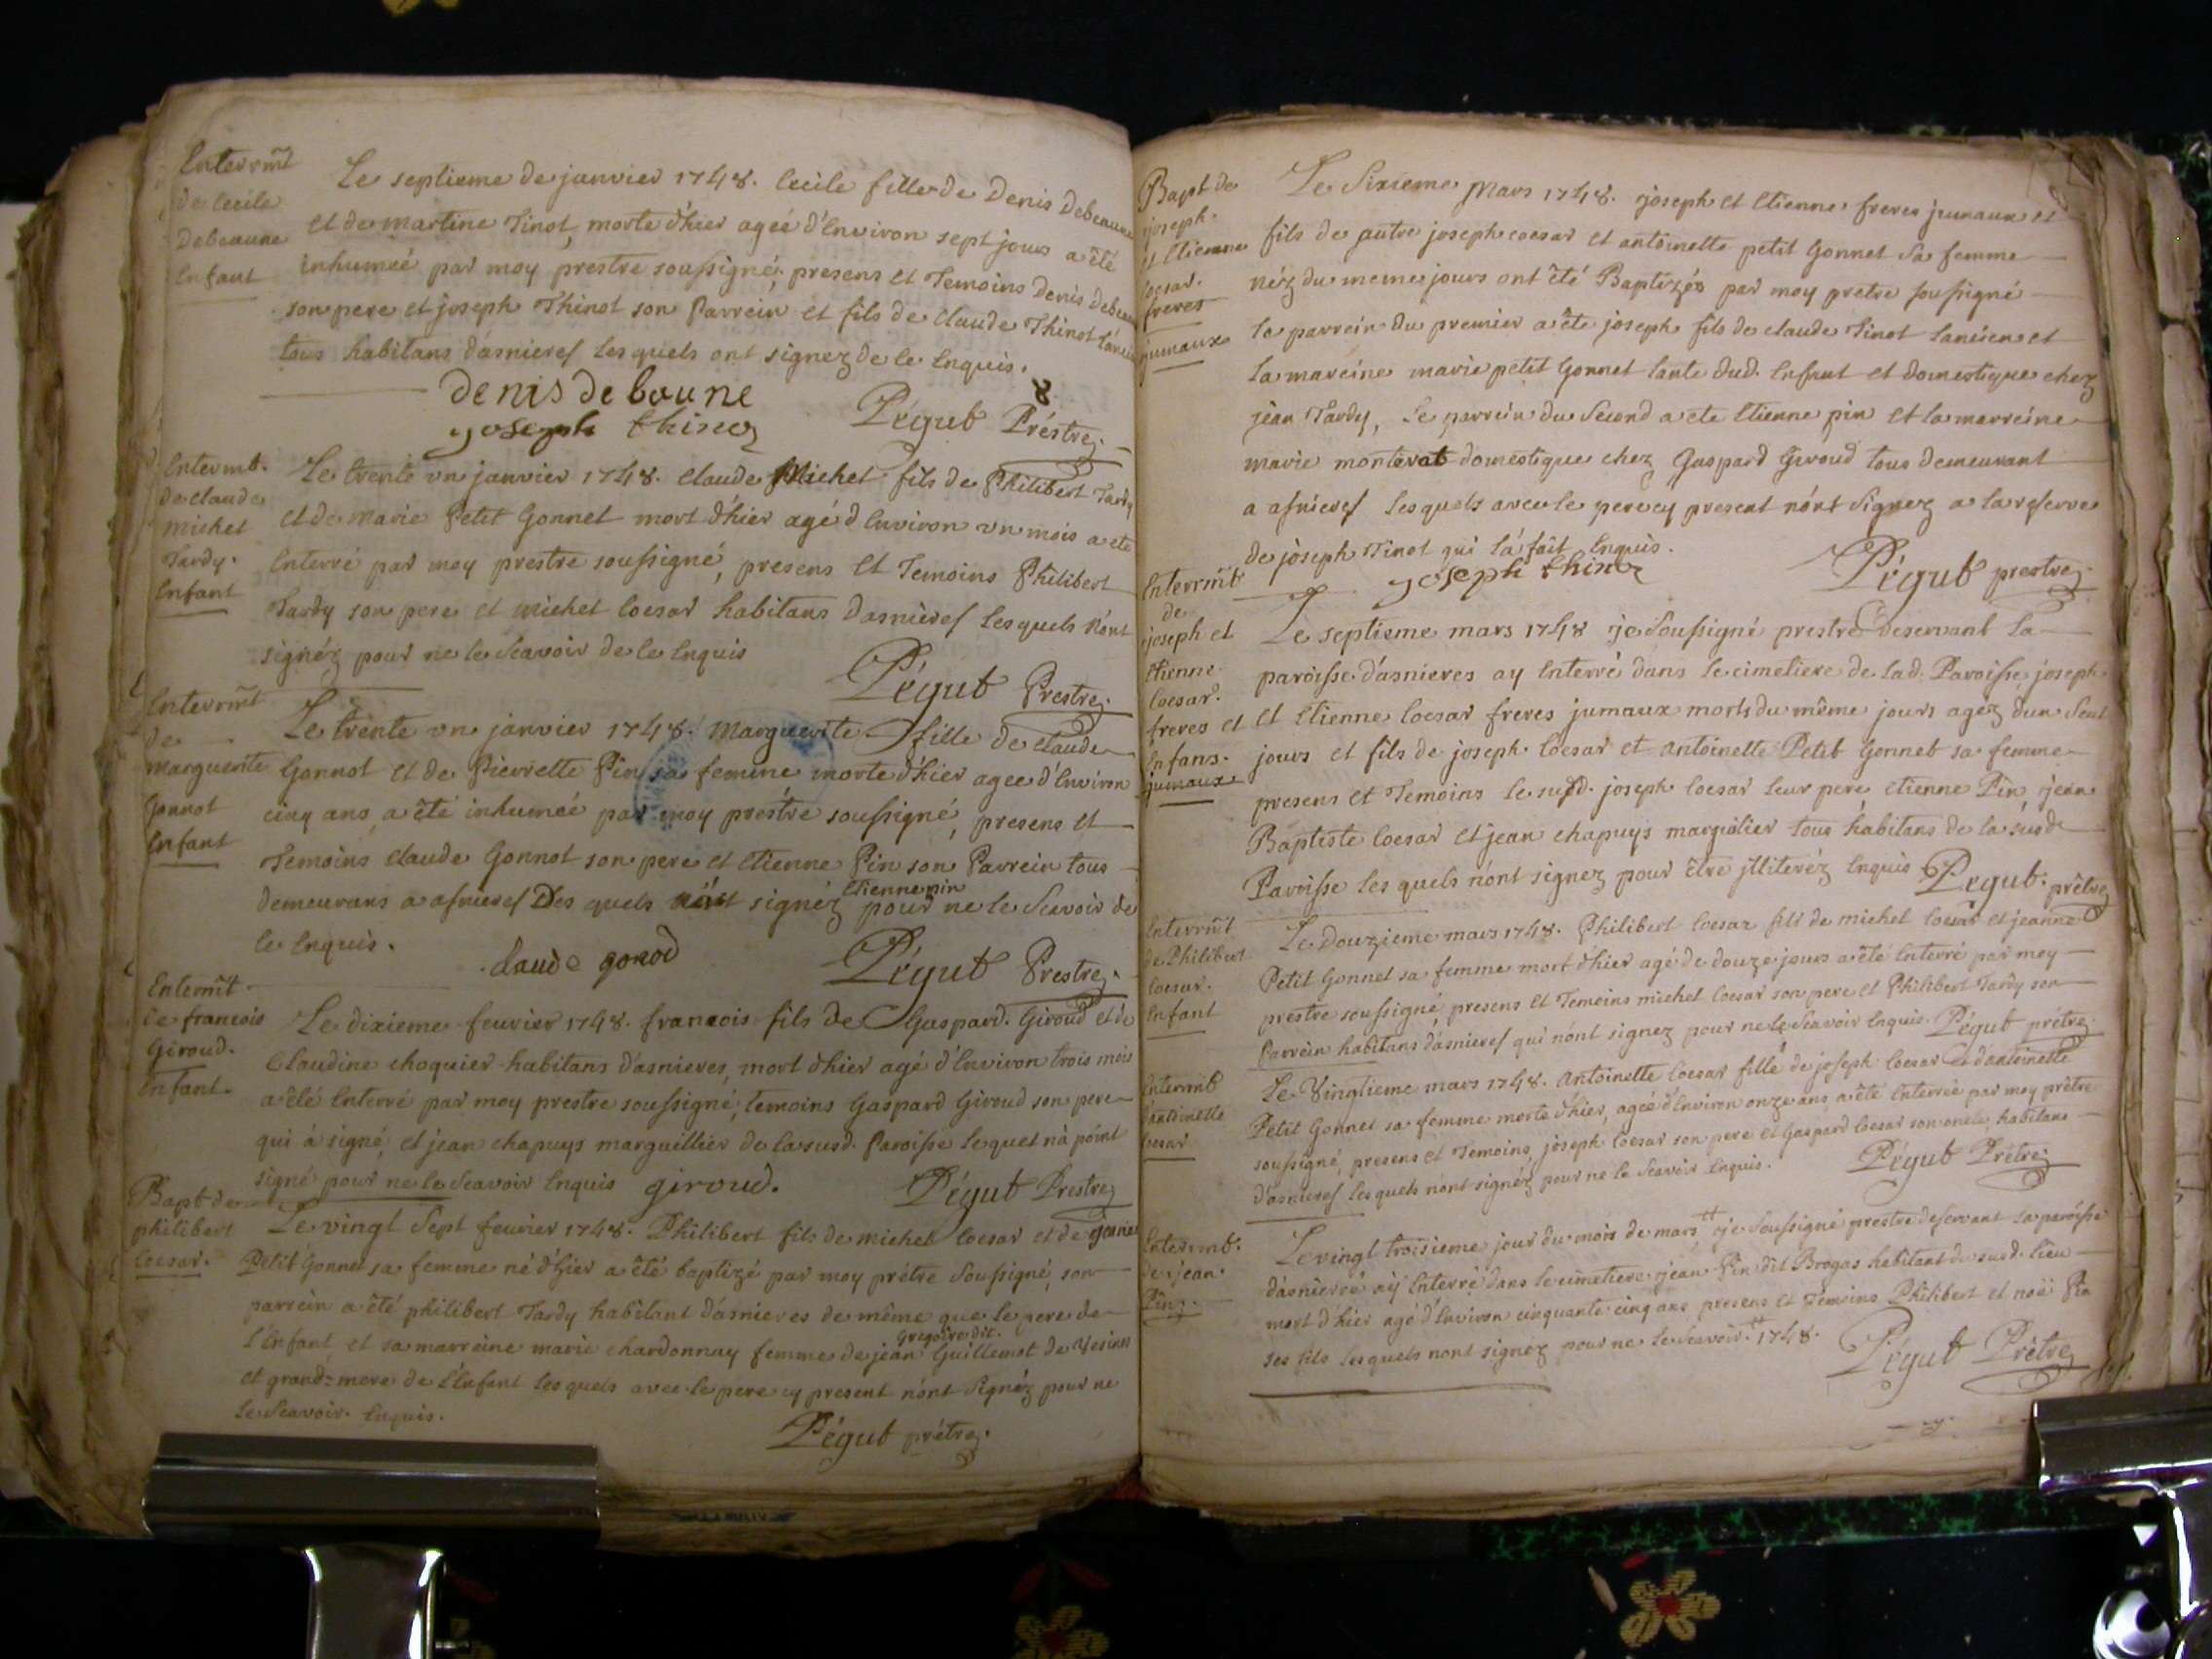 Enterrm̃t
de Cecile
Debeaune
Enfant
Le septieme de janvier 1748. Cecile fille de Denis Debeaune
et de martine Tinot, morte d'hier ageé d'Environ sept jours a êté
inhumeé par moy prestre soussigné, presens et Temoins Denis Debeau
son pere et joseph Thinot son Parrein et fils de Claude Thinot
tous habitans d'asnieres lesquels ont signez de le Enquis.
denis de baune
joseph thinoz
Pégut Préstre.
Entermt.
de claude
michel
Tardy.
Enfant
Le trente vn janvier 1748. Claude Michel fils de Philibert Tardy
et de Marie Petit Gonnet mort d'hier agé d'Environ vn mois a ete
Enterré par moy prestre soussigné, presens Et Temoins Philibert
Tardy son pere et michel Coesar habitans dasnieres Lesquels n'ont
signéz pour ne le Scavoir de le Enquis
Pégut Prestre.
Enterrm̃t
de
marguerite
Gonnot
Enfant
Le trente vn janvier 1748. Marguerite fille de claude
Gonnot et de Pierrette Pin sa femme morte d'hier agee d'Environ
cinq ans, a êté inhumeé par moy prestre soussigné, presens et
Temoins Claude Gonnot son pere et Etienne Pin son Parrein tous
demeurans a asnieres Des quels n'ont signéz Etienne pin pour ne le Scavoir de
le Enquis.
claude gonod
Pégut Prestre.
Enterrm̃t.
de francois
Giroud.
Enfant.
Le dixieme feuvrier 1748. francois fils de Gaspard. Giroud et de
Claudine choquier habitans d'asnieres, mort d'hier agé d'Environ trois mois
a êté Enterré par moy prestre soussigné, temoins Gaspard Giroud son pere
qui à signé, et jean chapuys marguillier de la susd. Paroisse lequel n'à póint
signé pour ne le Scavoir Enquis giroud.
Pégut Prestre
Bapt de
philibert
Coesar.
Le vingt Sept feurier 1748. Philibert fils de michel Coesar et de jeanne
Petit Gonnet sa femme né d'hier a êté baptizé par moy prétre Soussigné, son
parrein a êté philibert Tardy habitant d'asnieres de même que le pere de
l'Enfant et sa marreine marie chardonnay femme de jean Gregoire dit. Guillemot de
et grand-mere de l'Enfant lesquels avec le pere cy present n'ont signéz pour ne
le Scavoir. Enquis.
Pégut prétre.
Bapt de
joseph.
et Etienne
Coesar.
freres
jumaux
Le Sixieme Mars 1748. joseph et Etienne freres jumaux et
fils de autre joseph coesar et antoinette petit Gonnet Sa femme
néz du meme jours ont êté Baptizés par moy pretre soussigné
le parrein du premier a êté joseph fils de claude Tinot lancien et
la mareine marie petit Gonnet tante dud. Enfant et domestique chez
jean Tardy, Le parrein du Second a ete Etienne pin et la marreine
marie monterat domestique chez Gaspard Giroud tous demeurant
a asnieres lesquels avec le pere cy present n'ont Signez a la reserve
de joseph Tinot qui l'a fait Enquis.
joseph thinoz
Pégut prestre.
Enterrm̃t
de
joseph et
Etienne
Coesar.
freres et
Enfans.
jumaux
Le septieme mars 1748 je Soussigné prestre Deservant La
paroisse d'asnieres ay Enterré dans le cimetiere de lad. Paroisse joseph
et Etienne Coesar freres jumaux morts du même jours agez d'un Seul
jours et fils de joseph Coesar et antoinette Petit Gonnet sa femme
presens et Temoins le susd. joseph Coesar leur pere, Etienne Pin, jean
Baptiste Coesar et jean chapuys margulier tous habitans de la susde
Paroisse les quels n'ont signez pour être jlliteréz Enquis Pegut. prêtre
Enterrm̃t
de Philibert
Coesar.
Enfant
Le Douzieme mars 1748. Philibert Coesar fils de michel Coesar et jeanne
Petit Gonnet sa femme mort d'hier agé de douze jours a été Enterré par moy
prestre soussigné presens et Temoins michel Coesar son pere et Philibert Tardy son
Parrein habitans d'asnieres qui n'ont signez pour ne le Scavoir Enquis. Pégut prétre
Enterrmt
d'antoinette
Coesar
Le Vingtieme mars 1748. Antoinette Coesar fille de joseph Coesar et d'antoinette
Petit Gonnet sa femme morte d'hier, ageé d'Environ onze ans a êté Enterreé par moy prêtre
soussigné, presens et Temoins, joseph Coesar son pere et Gaspard Coesar son oncle, habitans
d'asnieres lesquels n'ont signéz pour ne le Scavoir Enquis.
Pégut Prêtre
Enterrmt.
de jean.
Pin.
Le vingt troisieme jour du mois de mars je Soussigné prestre deservant La paroisse
d'asnieres aÿ Enterré dans le cimetiere jean Pin dit Brogas habitant du susd. Lieu
mort d'hier agé d'Environ cinquante cinq ans presens et Temoins Philibert et noë Pin
ses fils lesquels n'ont signéz pour ne le Scavoir. 1748.
Pégut Prêtre